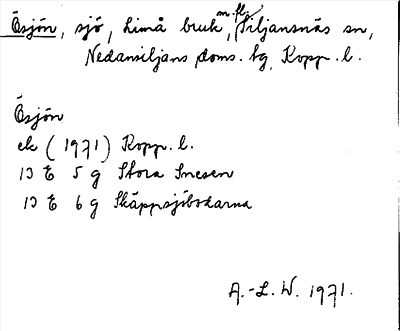 Ösjön, sjö, Limå bruk, m.fl. Siljansnäs sn,
Nedansiljans doms. tg, Kopp. l.
Ösjön
ek (1971) Kopp. l.
13 E 5 g Stora Snesen
13 E 6 g Skäppsjöbodarna
A.-L. W. 1971.